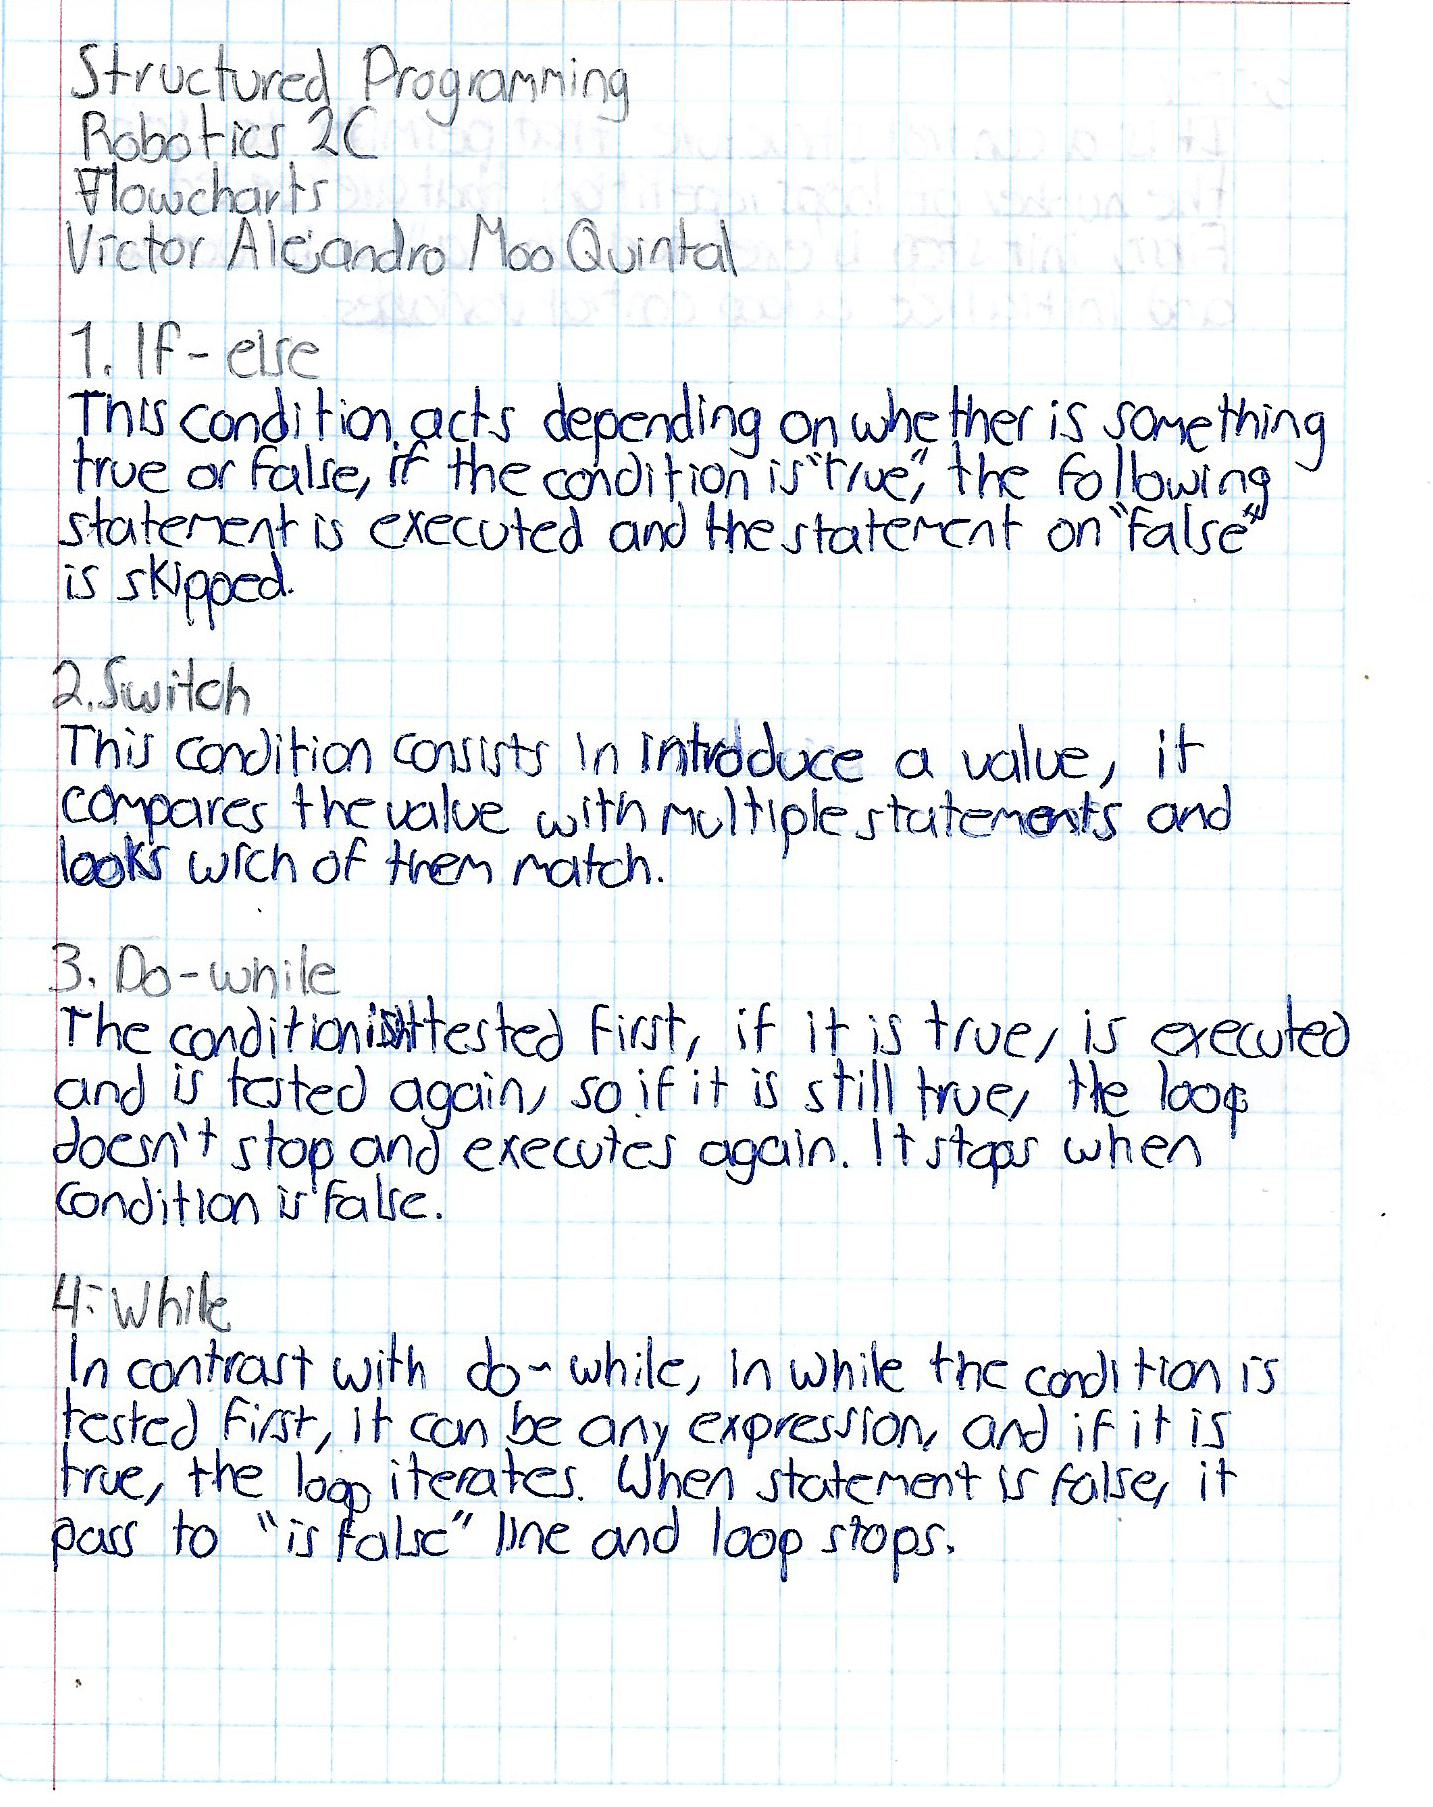 Structured Programming
Robotics 2C
Flowcharts
Victor Alejandro Moo Quintal
1. If-else
This condition acts depending on whether is something
true or false, if the condition is "true", the following
statement is executed and the statement on "false"
is skipped.
2. Switch
This condition consists in introduce a value, it
compares the value with multiple statements and
looks wich of them match.
3. Do-while
The condition isn't tested first, if it is true, is executed
and is tested again, so if it is still true, the loop
doesn't stop and executes again. It stops when
condition is false.
4. While
In contrast with do-while, in while the condition is
tested first, it can be any expression, and if it is
true, the loop iterates. When statement is false, it
pass to "is false" line and loop stops.